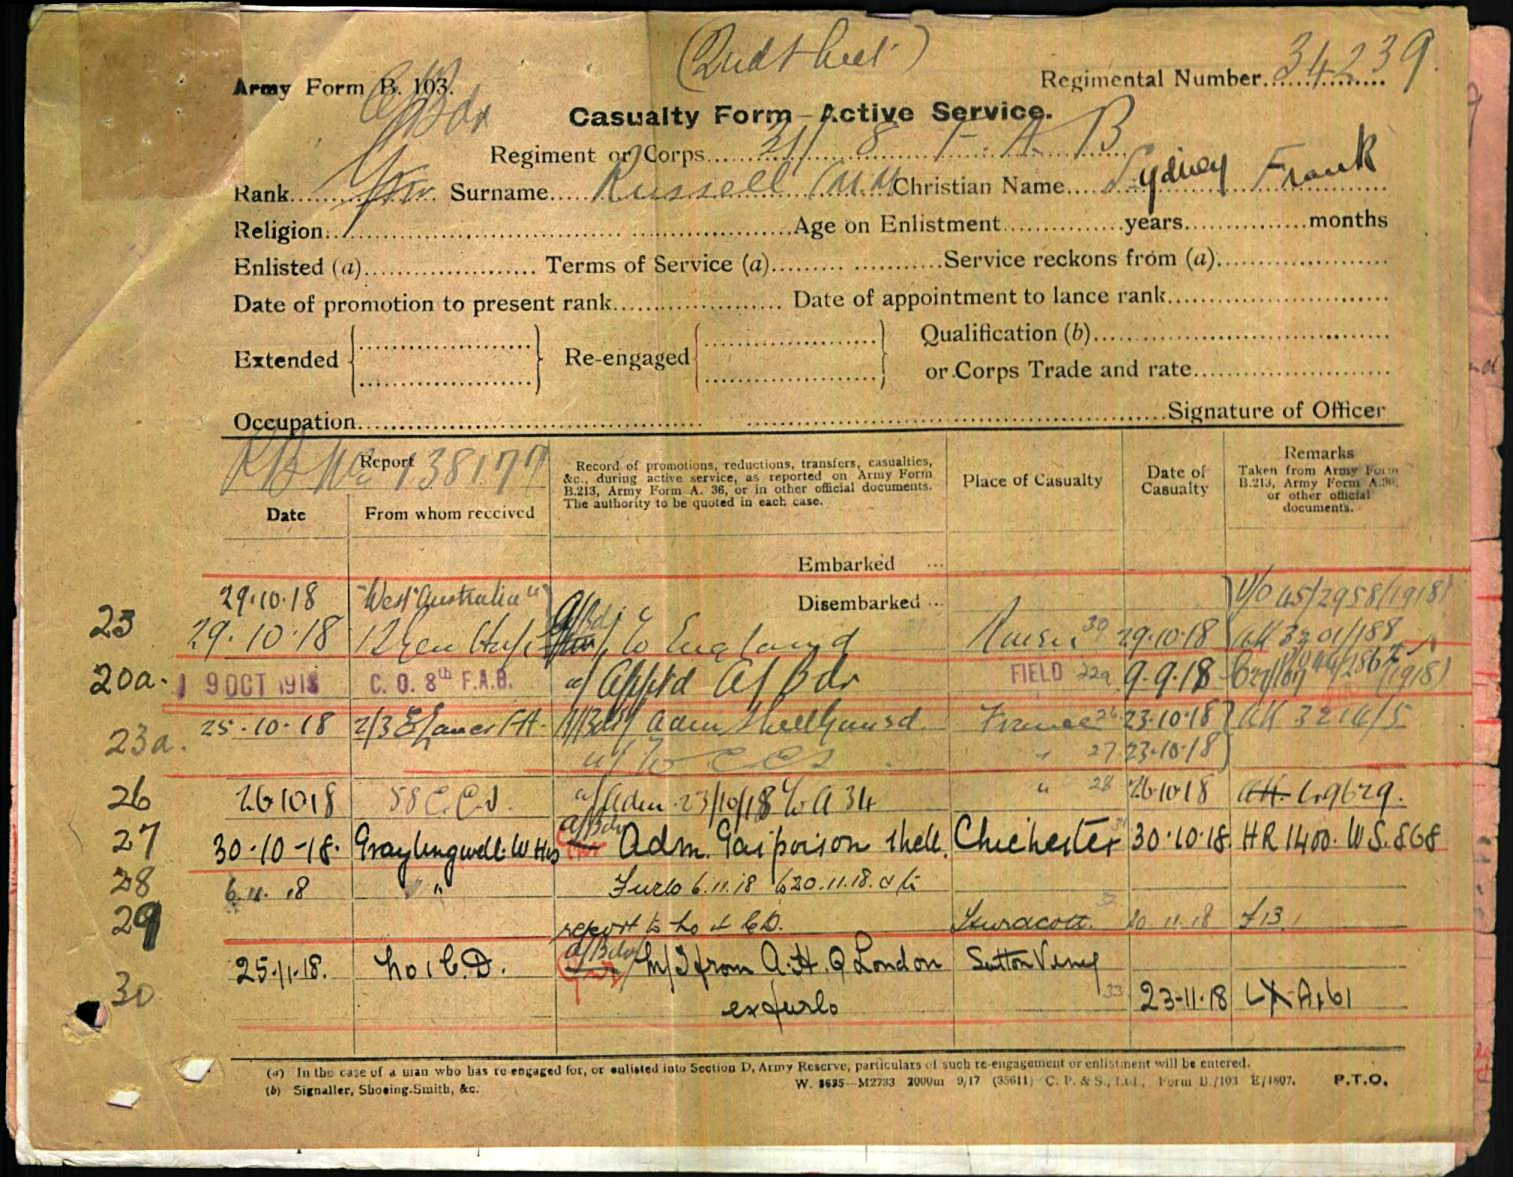 (2nd Sheet)
Army Form B. 103. Regimental Number 34239.
A/Bdr
Casualty Form—Active Service.
Regiment or Corps 31/8 F.A.B.
Rank Gnr. Surname Russell Christian Name Sydney Frank
Religion Age on Enlistment years months
Enlisted (a) Terms of Service (a) Service reckons from (a)
Date of promotion to present rank Date of appointment to lance rank
Extended Re-engaged Qualification (b)
or Corps Trade and rate
Occupation Signature of Officer
138177
Report Record of promotions, reductions, transfers, casualties, &c., during active service, as reported on Army Form B.213, Army Form A. 36, or in other official documents. The authority to be quoted in each case. Place of Casualty Date of Casualty Remarks Taken from Army Form B.213, Army Form A.36, or other official documents.
Date From whom received
Embarked ...
29.10.18 "West Australia" Disembarked ... 45/2958/1918
23 29.10.18 A/Bdr to England 30 29.10.18 3201/188
20a. 19 OCT 1918 C. O. 8th F.A.B. Appt'd A/Bdr FIELD 22a 9.9.18 (1918)
23a. 25.10.18 2/3 A/Bdr Adm Shell Gassed France 26 23.10.18 3214/5
To CCS " 27 23.10.18
26 26 10 18 58 C.C.S. Adm 23/10/18 To A 34 " 28 26.10.18
27 30-10-18. Graylingwell W Hos A/Bdr Adm. Gas poison shell. Chichester 31 30.10.18. HR 1400. W S. 868
28 6.11.18 " Furlo 6.11.18 to 20.11.18. & to
29 report to No 1 C.D. Hurdcott. 32
30 25.11.18. No 1 C.D. A/Bdr M/I from A.H.Q London Sutton Veny
ex furlo 33 23-11-18
(a) In the case of a man who has re-engaged for, or enlisted into Section D, Army Reserve, particulars of such re-engagement or enlistment will be entered.
(b) Signaller, Shoeing-Smith, &c. W. 8635—M2733 2000m 9/17 (35611) C. P. & S., Ltd., Form B./103 E/1807. P.T.O.